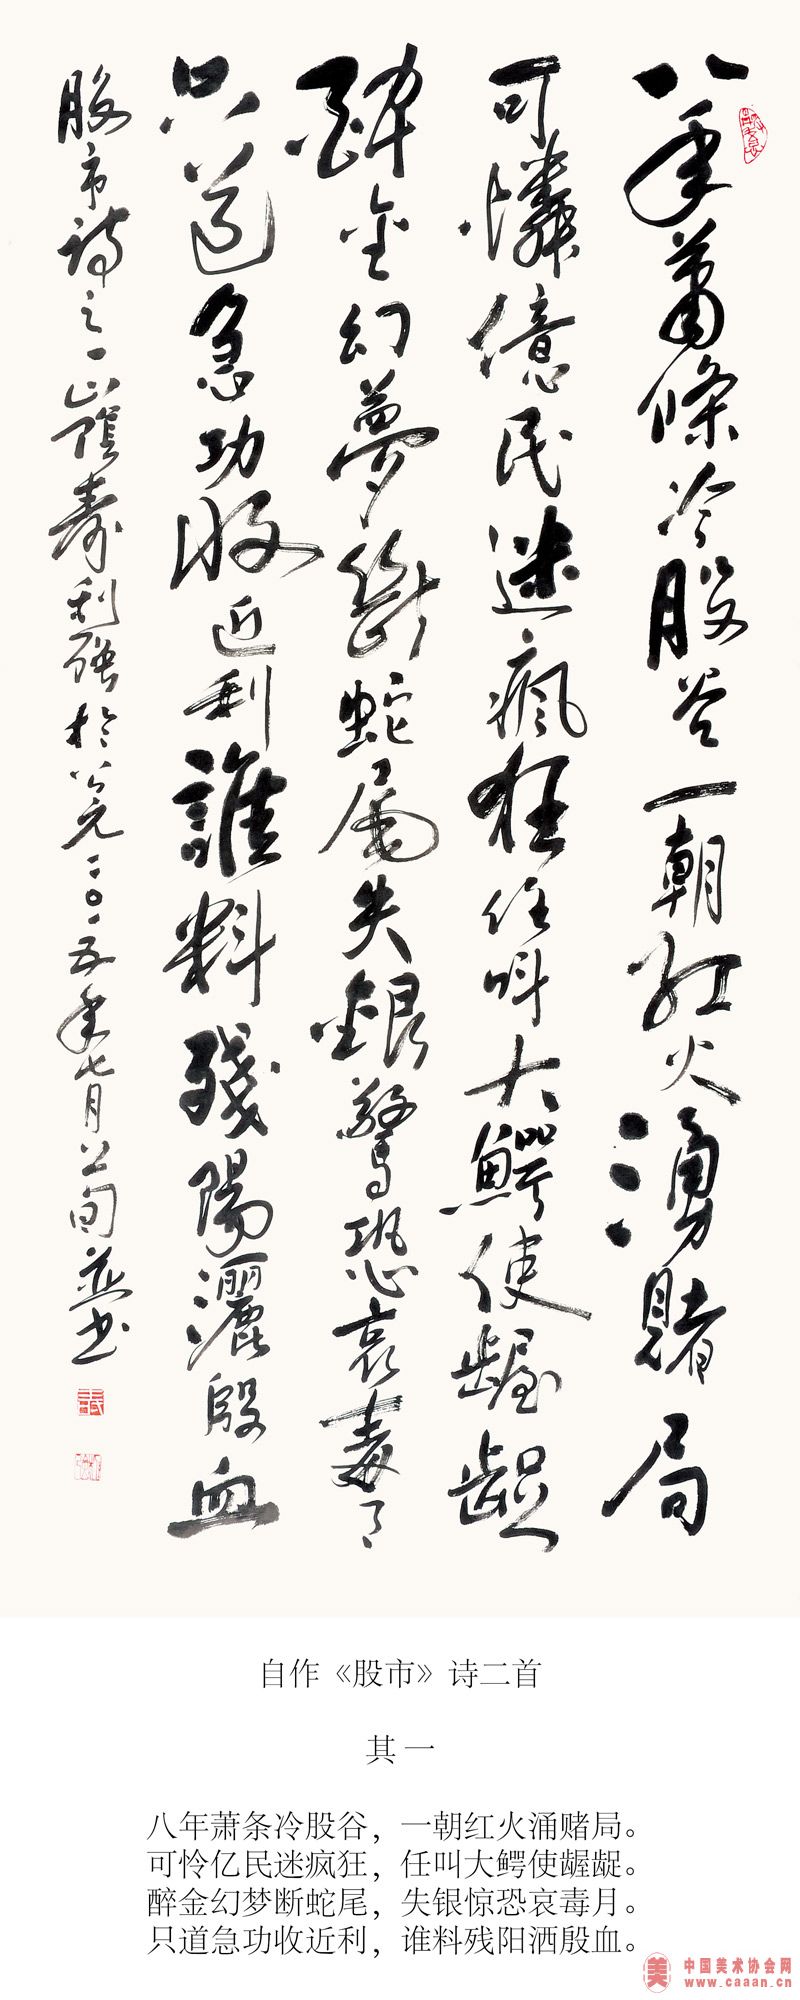 八年萧條冷股谷一朝红火湧賭局
可憐億民迷瘋狂任叫大鳄使齷龊
醉金幻夢斷蛇尾失銀驚恐哀毒月
只道急功收近利誰料殘陽灑殷血
股市诗之一山陰寿利强於公元二〇一五年七月上旬並书
自作《股市》诗二首
其一
八年萧条冷股谷，一朝红火涌赌局。
可怜亿民迷疯狂，任叫大鳄使龌龊。
醉金幻梦断蛇尾，失银惊恐哀毒月。
只道急功收近利，谁料残阳洒殷血。
美 中国美术协会网
www.caaan.cn